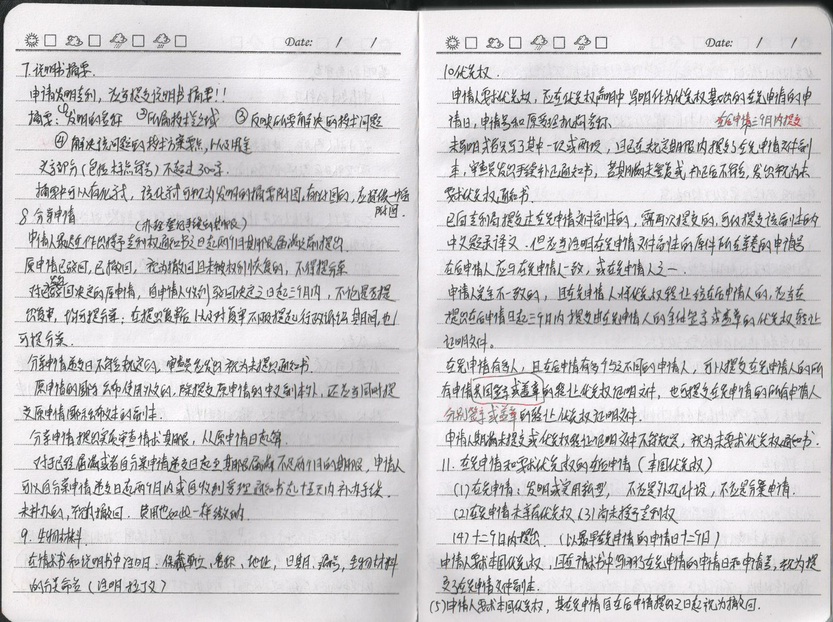 Date: / /
7. 说明书摘要.
申请发明专利,应当提交说明书摘要!!
摘要:①发明的名称 ②所属技术领域 ③反映所要解决的技术问题
④解决该问题的技术方案要点,以及用途
文字部分(包括标点符号)不超过300字.
摘要中可以有化学式,该化学式可视为发明的摘要附图,有附图的,应提供一幅附图.
8 分案申请 (办理登记手续的期限)
申请人最迟在收到授予专利权通知书之日起两个月期限届满之前提出.
原申请已驳回,已撤回,视为撤回且未被权利恢复的,不得提分案
对已驳回决定的原申请,自申请人收到驳回决定之日起三个月内,不论是否提
出复审,均可提分案;在提出复审后以及对复审不服提起行政诉讼期间,也
可提分案.
分案申请递交日不符合规定的,审查员应发出视为未提出通知书.
原申请的国际公布使用外文的,除提交原申请的中文副本外,还应当同时提
交原申请国际公布文本的副本.
分案申请提出实质审查请求期限,从原申请日起算.
对于已经届满或者自分案申请递交日起至期限届满不足两个月的期限,申请人
可以自分案申请递交日起两个月内或自收到受理通知书之日起十五天内补办手续.
未补办的,视为撤回. 费用也如此一样缴纳.
9. 生物材料.
在请求书和说明书中注明:保藏单位,名称,地址,日期,编号,生物材料
的分类命名(注明拉丁文)
Date: / /
10 优先权.
申请人要求优先权,应在优先权声明中写明作为优先权基础的在先申请的申
请日,申请号和原受理机构名称. 在后申请三个月内提交
未写明或错写了其中一项或两项,但已在规定期限内提交了在先申请文件副
本,审查员发出手续补正通知书,若期满未答复或补正后不符合,发出视为未
要求优先权通知书.
已向专利局提交过在先申请文件副本的,需再次提交的,可仅提交该副本的
中文题录译文. 但应当注明在先申请文件副本的原件所在案卷的申请号
在后申请人应与在先申请人一致,或在先申请人之一.
申请人完全不一致的,且在先申请人将优先权转让给在后申请人的,应当在
提出在后申请日起三个月内提交由在先申请人的全体签字或盖章的优先权转让
证明文件.
在先申请有多人,且在后申请有多个与之不同的申请人,可以提交在先申请人的所
有申请共同签字或盖章的转让优先权证明文件,也可提交在先申请的所有申请人
分别签字或盖章的转让优先权证明文件.
申请人期满未提交或优先权转让证明文件不符规定,视为未要求优先权通知书.
11. 在先申请和要求优先权的在后申请(本国优先权)
(1)在先申请:发明或实用新型,不应是外观设计,不应是分案申请.
(2)在先申请未享有优先权 (3)尚未授予专利权
(4)十二个月内提出.(以最早在先申请的申请日十二个月)
申请人要求本国优先权,且在请求书中写明了在先申请的申请日和申请号,视为提
交了在先申请文件副本.
(5)申请人要求本国优先权,其在先申请自在后申请提出之日起视为撤回.